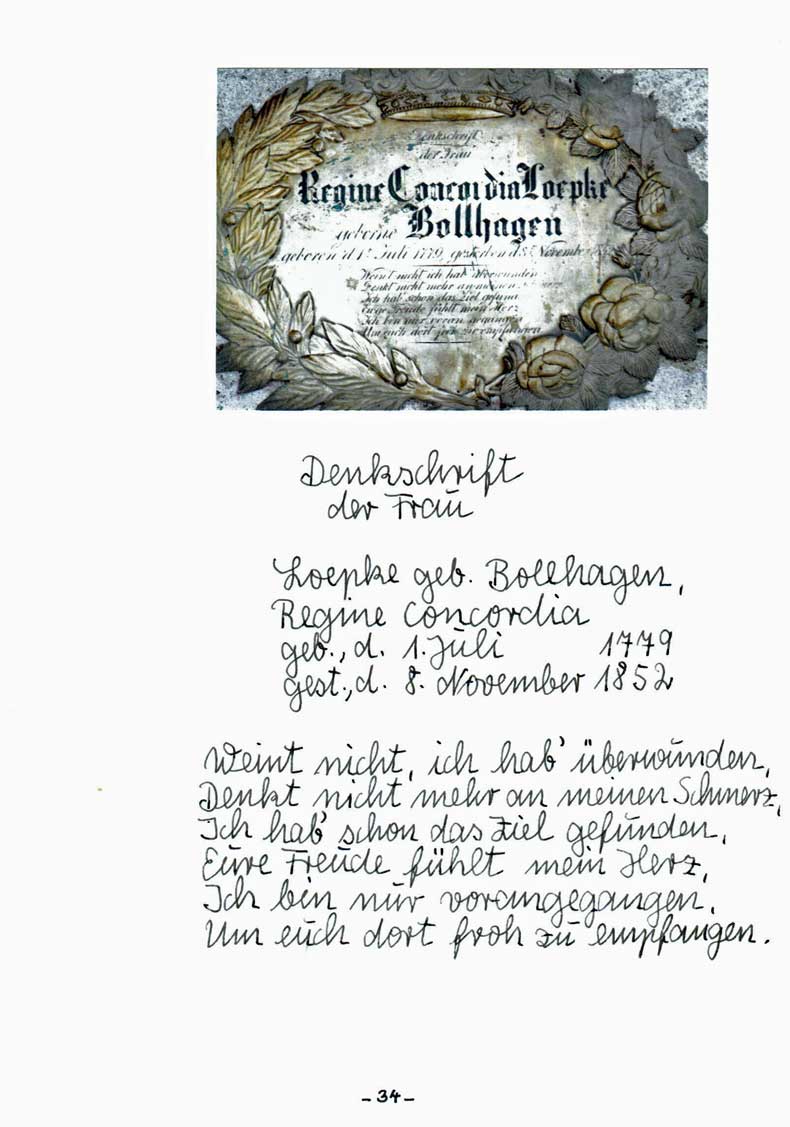 Denkschrift
der Frau
Regine Concordia Loepke
geborne Bollhagen
geboren d. 1. Juli 1779, gestorben d. 8. November
Weint nicht ich hab überwunden
Denkt nicht mehr an meinen
Ich hab schon das Ziel
Ew'ge Freude fühlt mein Herz
Ich bin nur voran gegangen
Um euch dort froh zu empfangen
Denkschrift
der Frau
Loepke geb. Bollhagen,
Regine Concordia
geb., d. 1. Juli 1779
gest., d. 8. November 1852
Weint nicht, ich hab' überwunden,
Denkt nicht mehr an meinen Schmerz,
Ich hab' schon das Ziel gefunden,
Eure Freude fühlt mein Herz,
Ich bin nur vorangegangen,
Um euch dort froh zu empfangen.
- 34 -